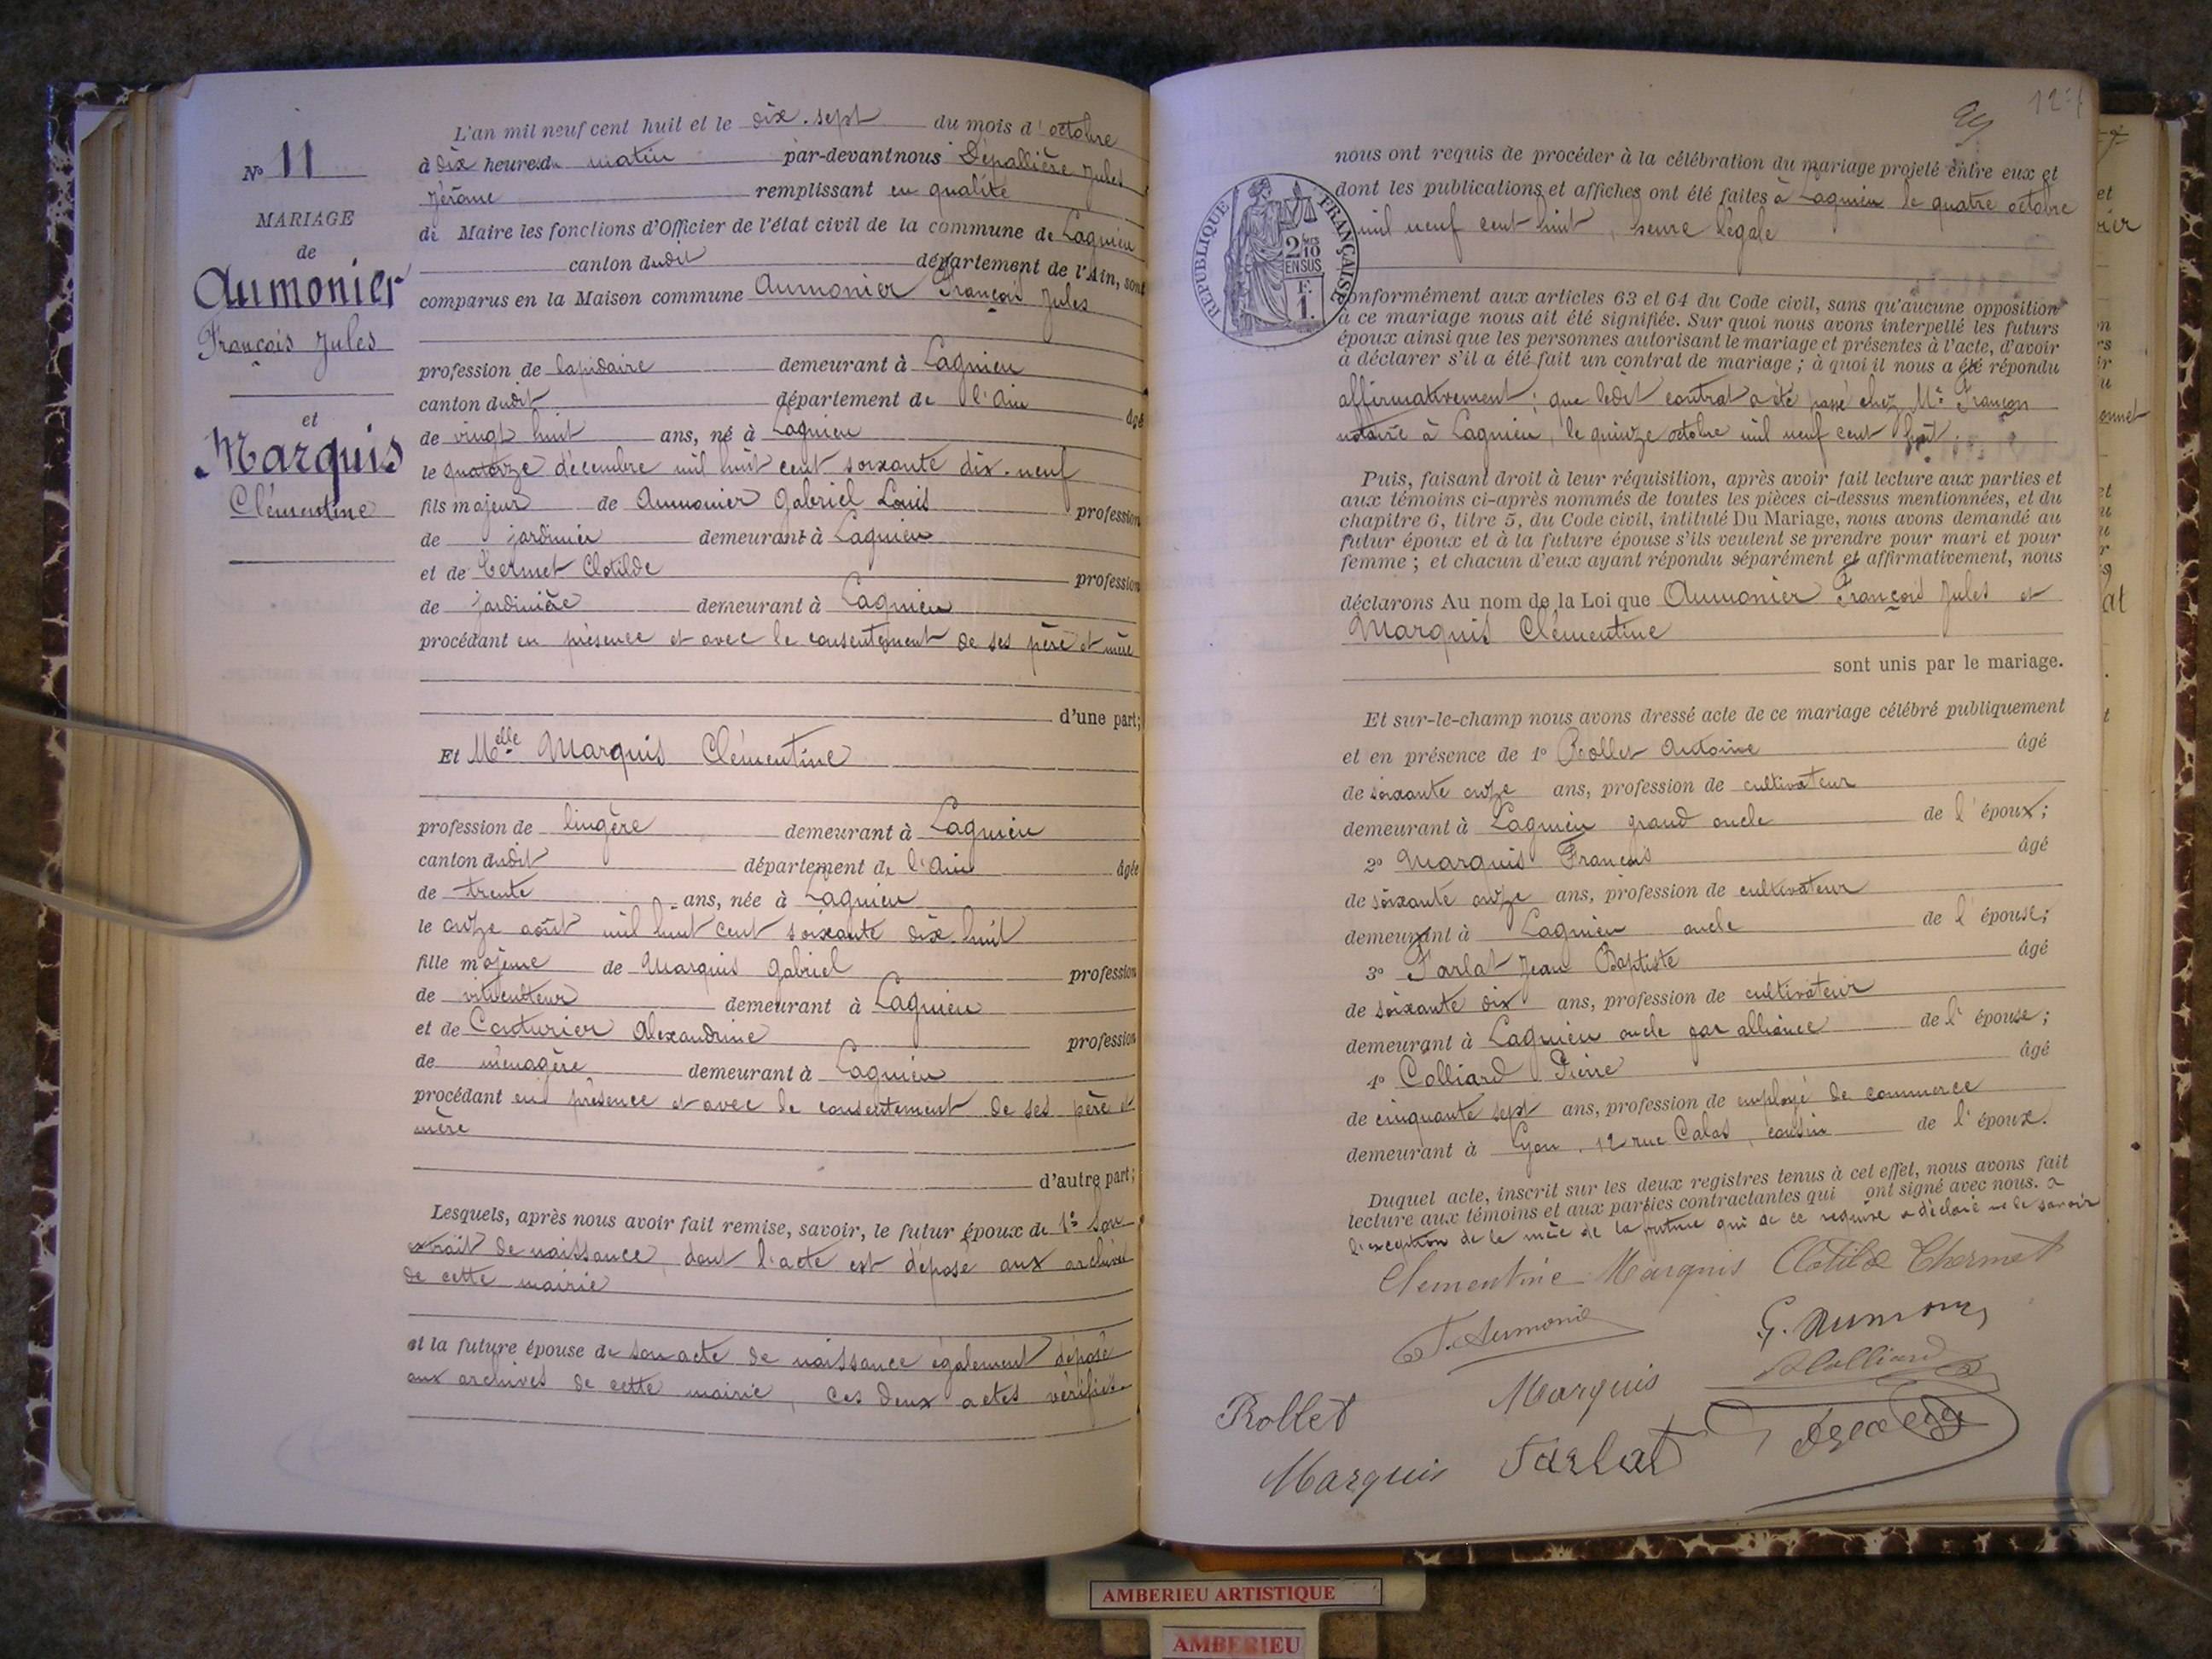 N° 11
MARIAGE
de
Aumonier
François Jules
et
Marquis
Clémentine
L'an mil neuf cent huit et le dix-sept du mois d'octobre
à dix heures du matin par-devant nous Dépallière Jules
Jérôme remplissant en qualité
de Maire les fonctions d'Officier de l'état civil de la commune de Lagnieu
canton dudit département de l'Ain, sont
comparus en la Maison commune Aumonier François Jules
profession de lapidaire demeurant à Lagnieu
canton dudit département de l'Ain âgé
de vingt huit ans, né à Lagnieu
le quatorze décembre mil huit cent soixante dix-neuf
fils majeur de Aumonier Gabriel Louis profession
de jardinier demeurant à Lagnieu
et de Clotilde profession
de jardinière demeurant à Lagnieu
procédant en présence et avec le consentement de ses père et mère
d'une part;
Et Melle Marquis Clémentine
profession de lingère demeurant à Lagnieu
canton dudit département de l'Ain âgée
de trente ans, née à Lagnieu
le onze août mil huit cent soixante dix huit
fille majeure de Marquis Gabriel profession
de viticulteur demeurant à Lagnieu
et de Couturier Alexandrine profession
de ménagère demeurant à Lagnieu
procédant en présence et avec le consentement de ses père et
mère
d'autre part;
Lesquels, après nous avoir fait remise, savoir, le futur époux de 1° Son
extrait de naissance, dont l'acte est déposé aux archives
de cette mairie
et la future épouse de son acte de naissance également déposé
aux archives de cette mairie, ces deux actes vérifiés
RÉPUBLIQUE FRANÇAISE
2/10
EN SUS
F.
1.
nous ont requis de procéder à la célébration du mariage projeté entre eux et
dont les publications et affiches ont été faites à Lagnieu le quatre octobre
mil neuf cent huit, heure légale
conformément aux articles 63 et 64 du Code civil, sans qu'aucune opposition
à ce mariage nous ait été signifiée. Sur quoi nous avons interpellé les futurs
époux ainsi que les personnes autorisant le mariage et présentes à l'acte, d'avoir
à déclarer s'il a été fait un contrat de mariage; à quoi il nous a été répondu
affirmativement; que ledit contrat a été passé chez Me Françon
notaire à Lagnieu, le quinze octobre mil neuf cent huit.
Puis, faisant droit à leur réquisition, après avoir fait lecture aux parties et
aux témoins ci-après nommés de toutes les pièces ci-dessus mentionnées, et du
chapitre 6, titre 5, du Code civil, intitulé Du Mariage, nous avons demandé au
futur époux et à la future épouse s'ils veulent se prendre pour mari et pour
femme; et chacun d'eux ayant répondu séparément et affirmativement, nous
déclarons Au nom de la Loi que Aumonier François Jules et
Marquis Clémentine
sont unis par le mariage.
Et sur-le-champ nous avons dressé acte de ce mariage célébré publiquement
et en présence de 1° Rollet Antoine âgé
de soixante onze ans, profession de cultivateur
demeurant à Lagnieu grand oncle de l'époux;
2° Marquis François âgé
de soixante onze ans, profession de cultivateur
demeurant à Lagnieu oncle de l'épouse;
3° Tarlat Jean Baptiste âgé
de soixante dix ans, profession de cultivateur
demeurant à Lagnieu oncle par alliance de l'épouse;
4° Colliard Pierre âgé
de cinquante sept ans, profession de employé de commerce
demeurant à Lyon, 12 rue Calas, cousin de l'époux.
Duquel acte, inscrit sur les deux registres tenus à cet effet, nous avons fait
lecture aux témoins et aux parties contractantes qui ont signé avec nous. a
l'exception de la mère de la future qui de ce requise a déclaré ne le savoir
Clementine Marquis Clotilde Chermet
F. Aumonier G. Aumonier
Marquis Colliard
Rollet
Marquis Tarlat
AMBERIEU ARTISTIQUE
AMBERIEU